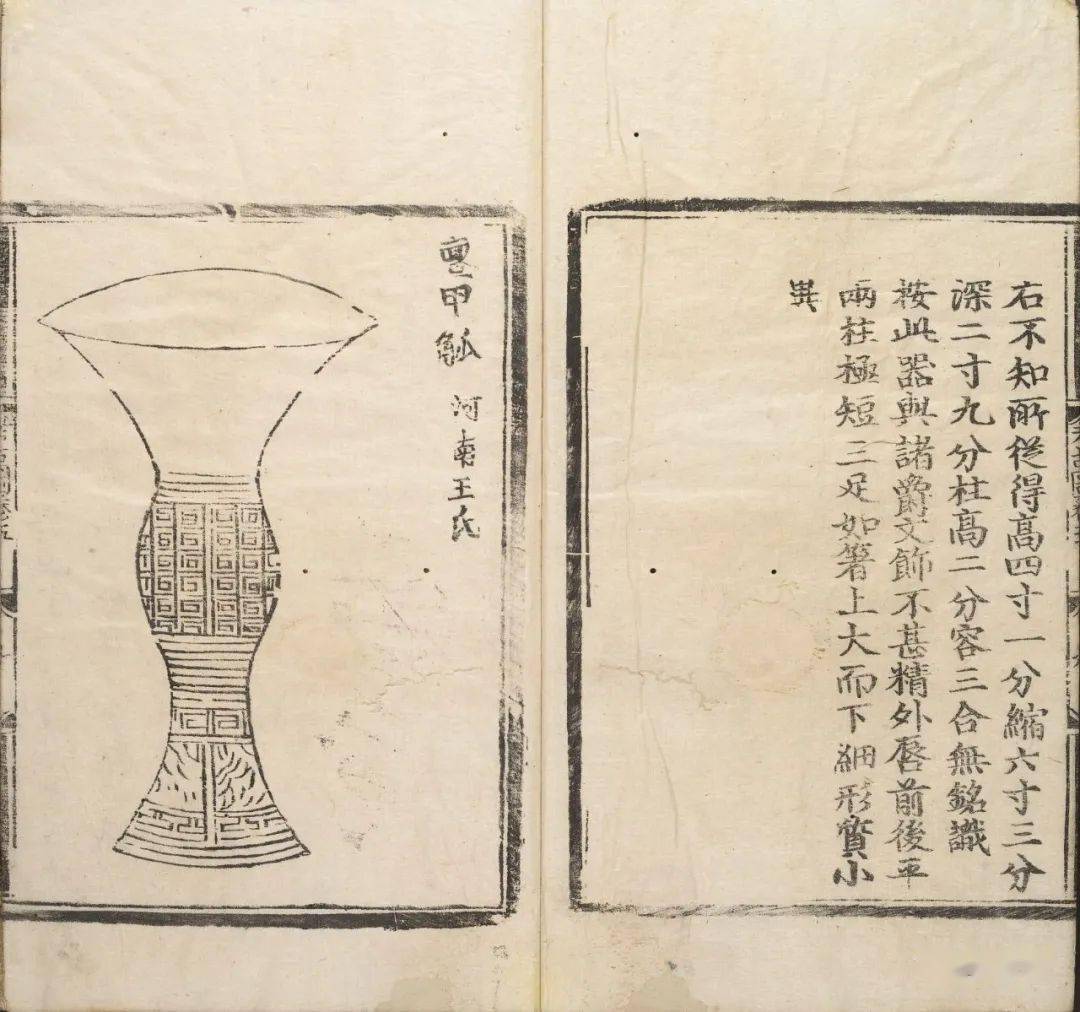 右不知所從得高四寸一分縮六寸三分
深二寸九分柱高二分容三合無銘識
按此器與諸爵文飾不甚精外唇前後平
兩柱極短三足如箸上大而下細形質小
異
甲觚
河南王氏